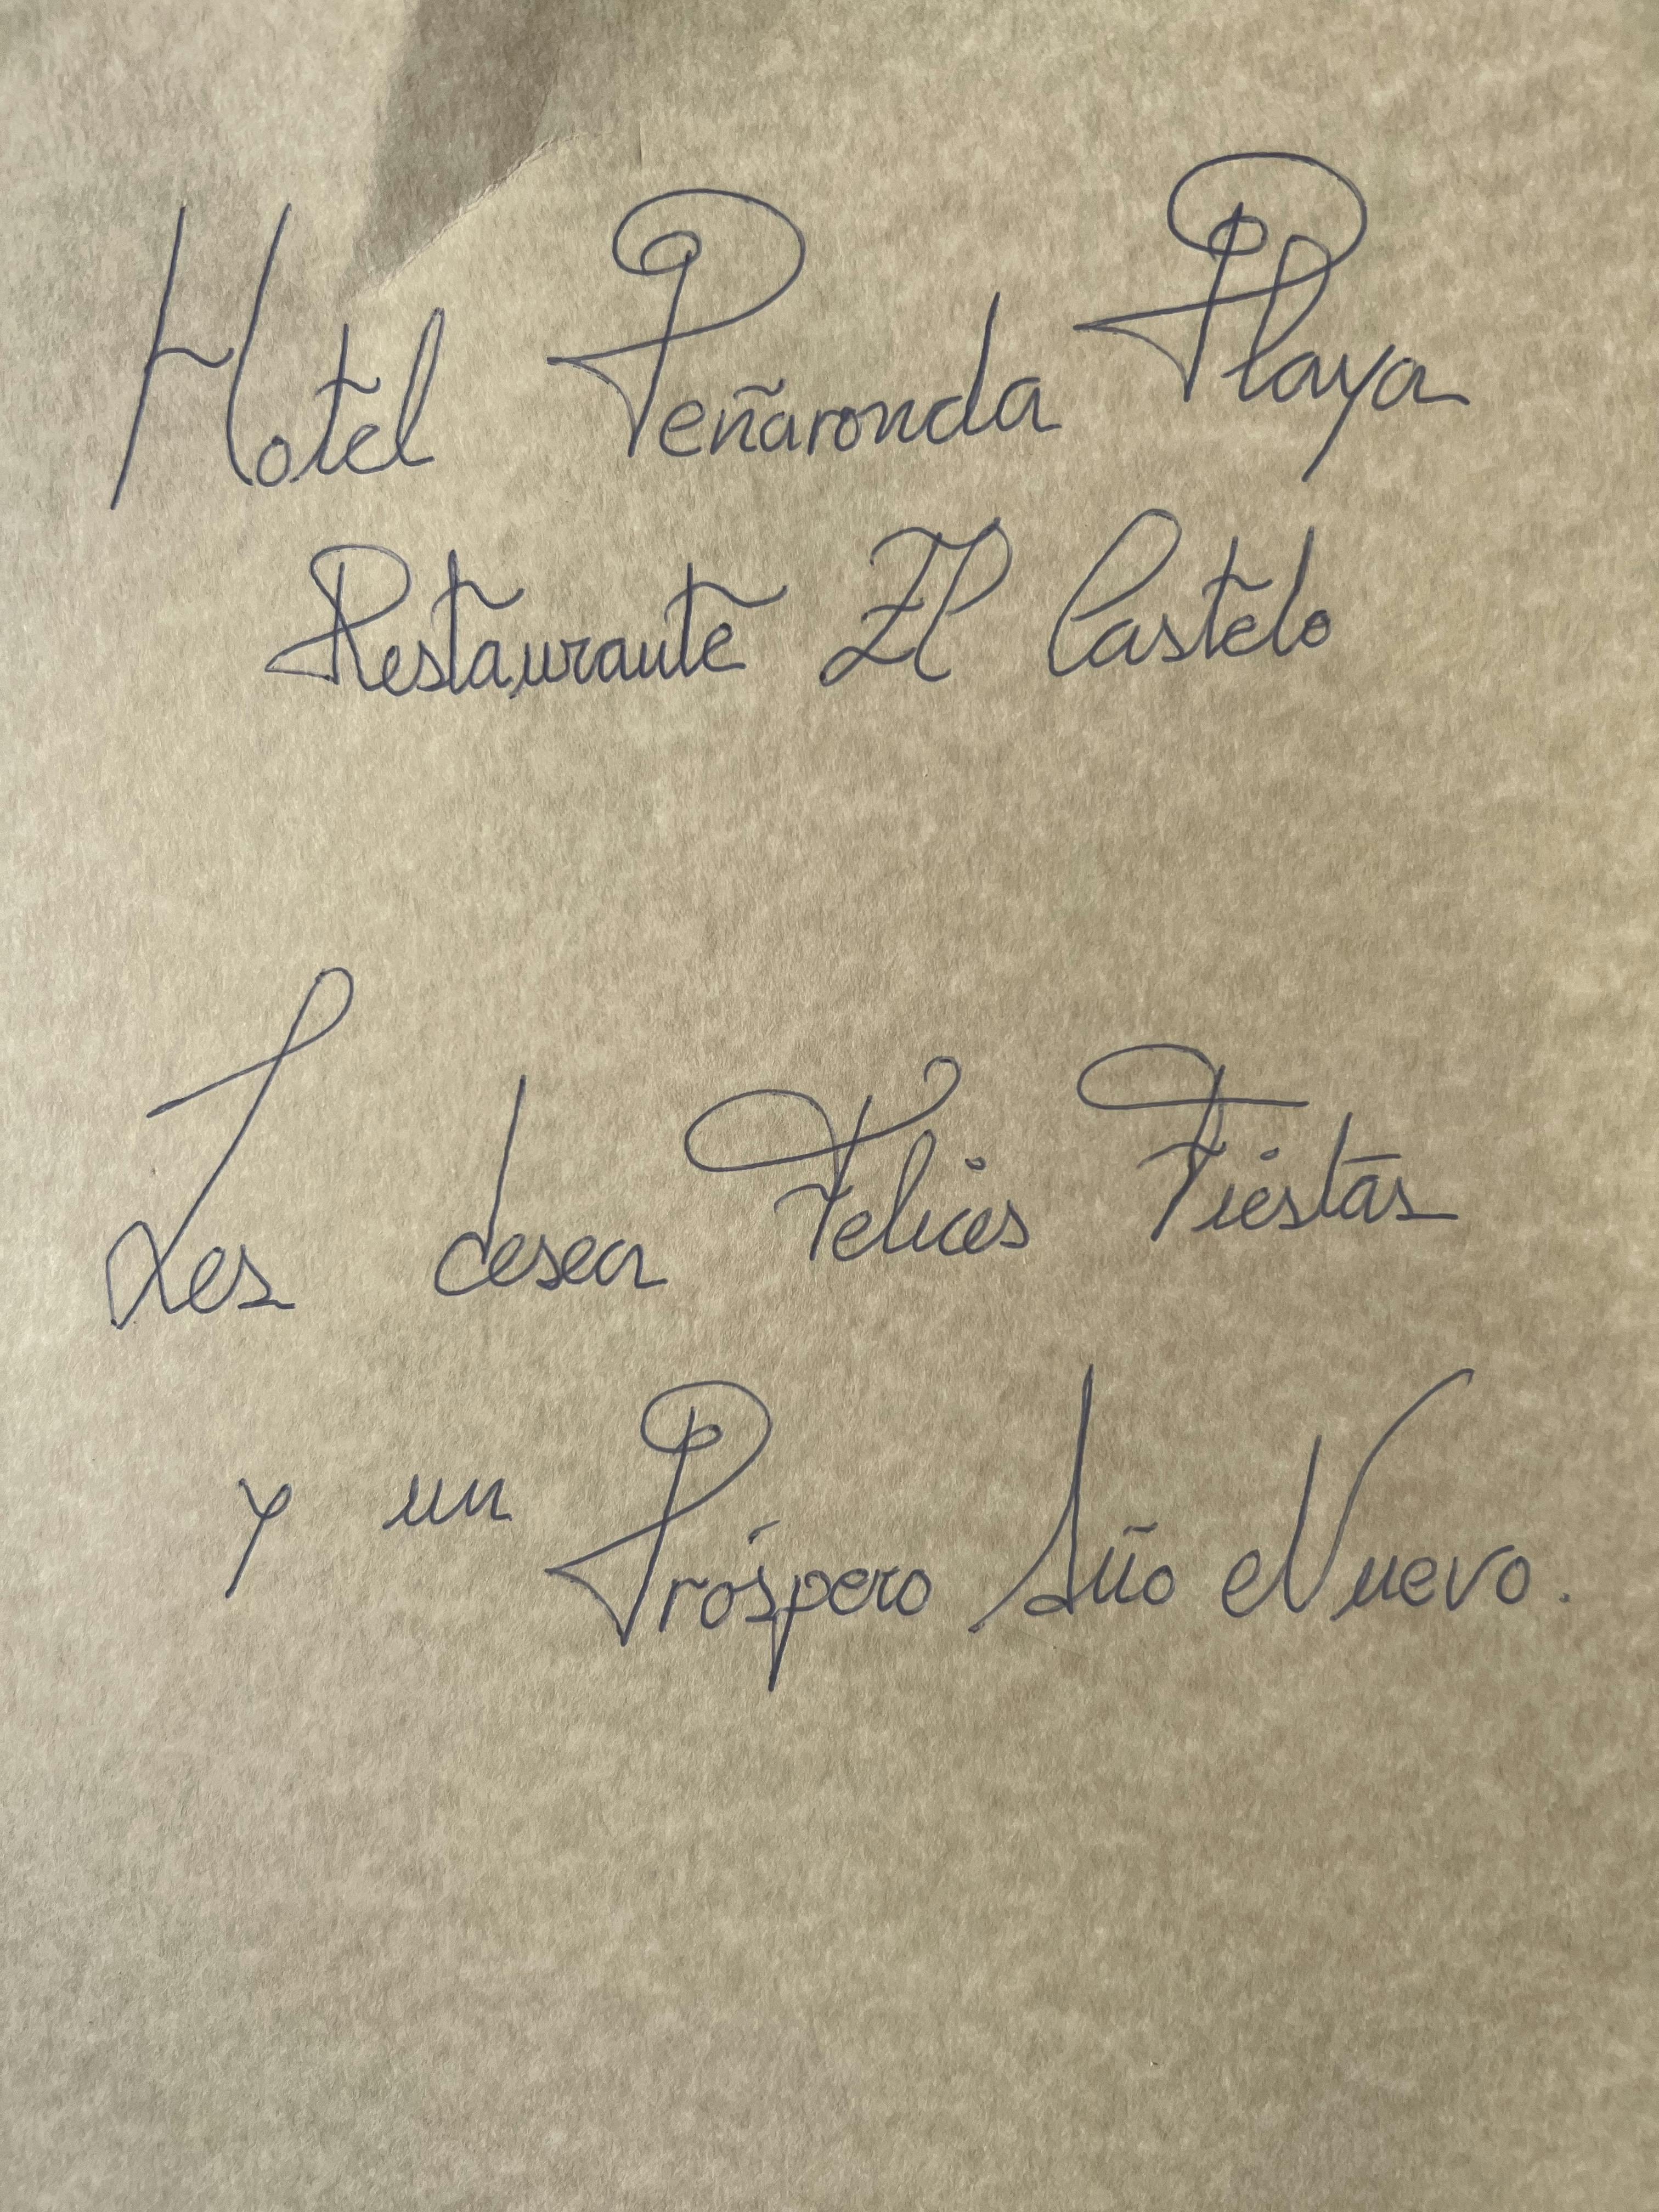 Hotel Peñaronda Playa
Restaurante El Castelo
Les desea Felices Fiestas
y un Próspero Año Nuevo.